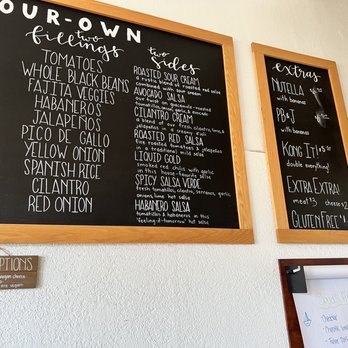 OUR-OWN
two
fillings
TOMATOES
WHOLE BLACK BEANS
FAJITA VEGGIES
HABANEROS
JALAPEÑOS
PICO DE GALLO
YELLOW ONION
SPANISH RICE
CILANTRO
RED ONION
two
sides
ROASTED SOUR CREAM
a rustic blend of roasted red
combined with sour cream
AVOCADO SALSA
guacamole-roasted
tomatillos, onion, garlic, & avocado
CILANTRO CREAM
a blend of our fresh cilantro, &
jalapeños in a creamy
ROASTED RED SALSA
fire roasted tomatoes & jalapeños
in a traditional mild salsa
LIQUID GOLD
smoked red chile with garlic
in this house-favorite salsa
SPICY SALSA VERDE
fresh tomatillos, cilantro, serranos, garlic,
onions, lime hot salsa
HABANERO SALSA
tomatillos & habaneros in this
"feeling-it-tomorrow" hot salsa
extras
NUTELLA
with bananas
PB & J
with bananas
KONG IT!
double everything!
EXTRA EXTRA!
meat $3 cheese
GLUTEN FREE
PTIONS
vegan cheese